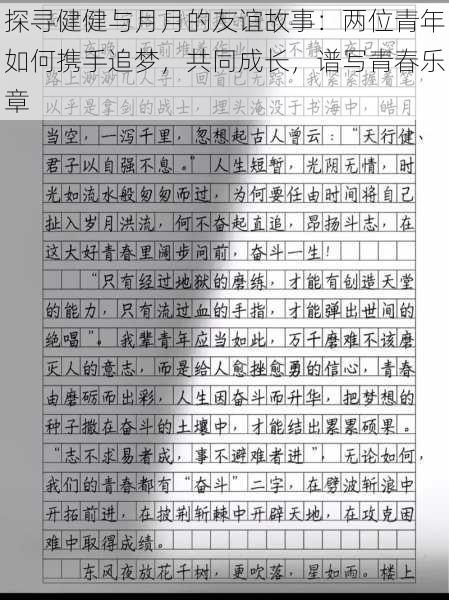 探寻健健与月月的友谊故事：两位青年
如何携手追梦，共同成长，谱写青春乐
章
路上渺渺几人寻，回首已无踪。我紧紧握着笔，
以乎是拿剑的战士，埋头淹没于书海中，皓月
当空，一泻千里，忽想起古人曾云：“天行健、
君子以自强不息。”人生短暂，光阴无情，时
光如流水般匆匆而过，为何要任由时间将自己
扯入岁月洪流，何不奋起直追，昂扬斗志，在
这大好青春里阔步向前，奋斗一生！
“只有经过地狱的磨练，才能有创造天堂
的能力，只有流过血的手指，才能弹出世间的
绝唱”。我辈青年应当如此，万千磨难不该磨
灭人的意志，而是给人愈挫愈勇的信心，青春
由磨砺而出彩，人生因奋斗而升华，把梦想的
种子撒在奋斗的土壤中，才能结出累累硕果。
“志不求易者成，事不避难者进”，无论如何，
我们的青春都有“奋斗”二字，在劈波斩浪中
开拓前进，在披荆斩棘中开辟天地，在攻克困
难中取得成绩。
东风夜放花千树，更吹落，星如雨。楼上